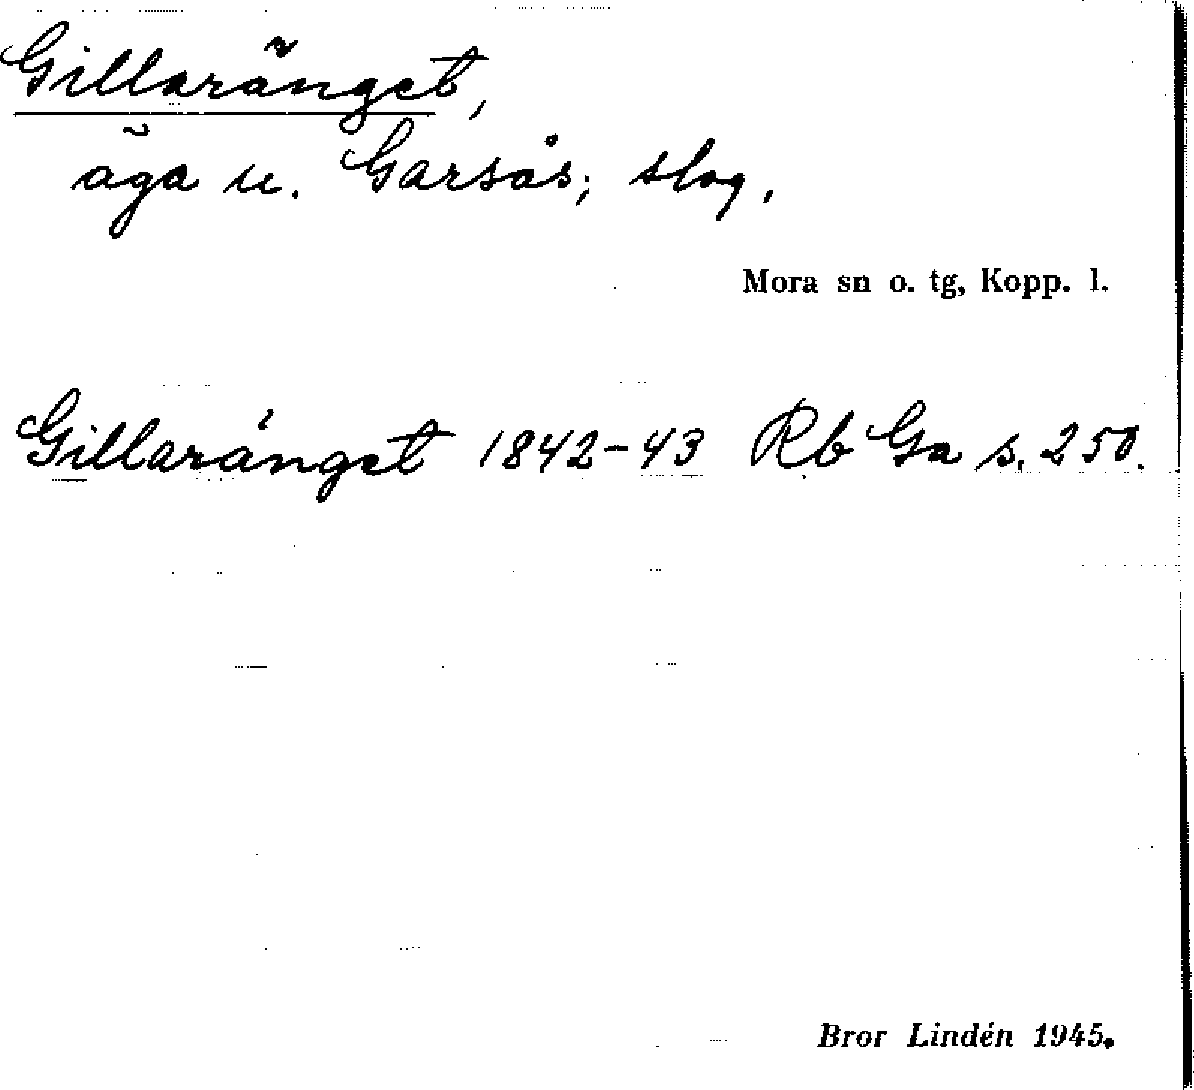 Gillaränget,
äga u. Garsås; slog.
Mora sn o. tg, Kopp. l.
Gillaränget 1842-43 Rb Ga s. 250.
Bror Lindén 1945.